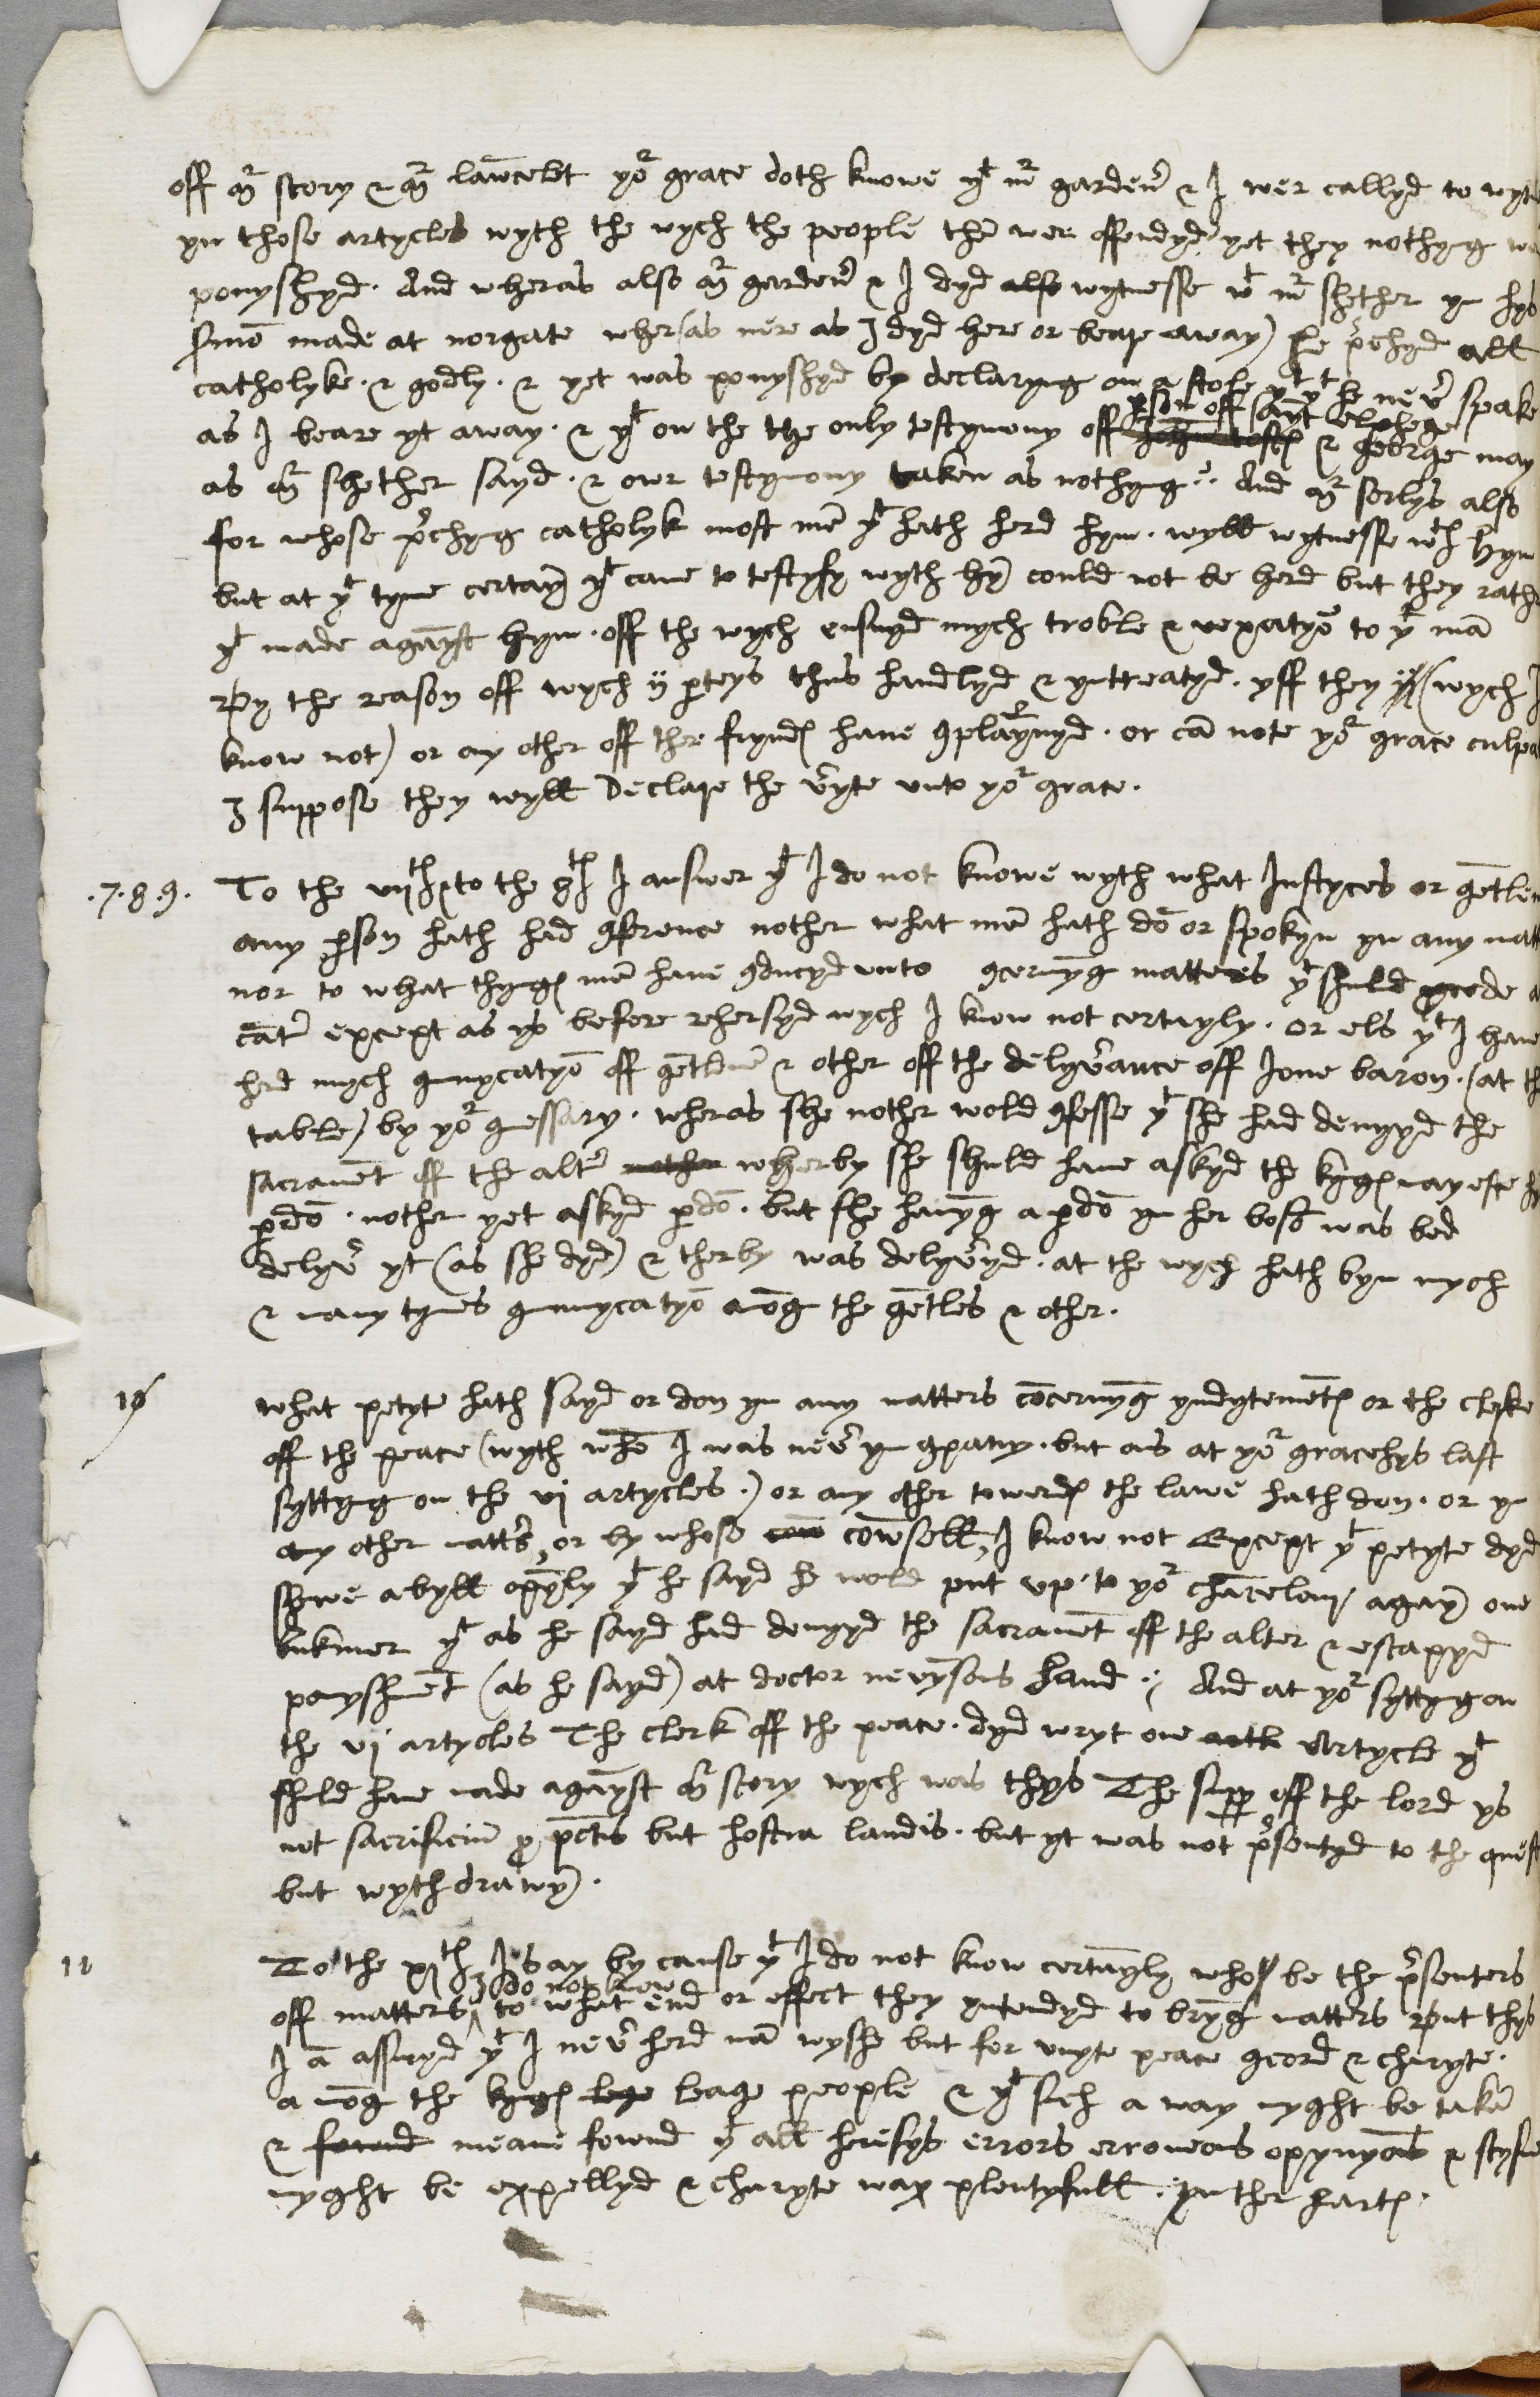 off mr scory & mr lawncelot yor grace doth knowe yt mr gardenr & I wer callyd to wytn
yn those artycles wyth the wych the people thē wer offendyd yet they nothyng we
ponyshyd. And wheras also mr gardenr & I dyd also wytnesse wt mr shether yn hys
sermō made at norgate wher (as nere as I dyd here or beare away) he p̄chyd all
catholyke. & godly. & yet was ponyshyd by declaryng on a stole yt yt he nevr spake
p̱son off saynt elphege
as I beare yt away. & yt on the the only testymony off & george may
as mr shether sayd. & owr testymony taken as nothyng. And mr serlys also
for whose p̄chyng catholyk most mē yt hath herd hym. wyll wytnesse wth hym
but at yt tyme certayn yt came to testyfy wyth hȳ could not be herd but they rathr
yt made agaȳst hym. off the wych ensuyd mych troble & vexatyō to yt mā
By the reason off wych ij p̱teys thus handlyd & yntreatyd. yff they (wych I
know not) or any other off there fryndes have ꝯplaynyd. or cā note yor grace culpa
I suppose they wyll declare the vryte unto yor grace.
.7.8.9. To the vijth to the 9th I answer yt I do not knowe wyth what Justyces or gētlem
any p̱son hath had ꝯference nother what mē hath dō or spokyn yn any matt
nor to what thynges mē have ꝯducyd unto ꝯcernȳg matters yt shuld p̱cede a
cātr except as ys before rehersyd wych I know not certaynly. or els yt I have
herd mych ꝯmunycatyō off gētlemē & other off the delyvrance off Jone baron. (at th
table) by yor ꝯmessary. wheras she nother wold ꝯfesse yt she had denyyd the
sacramēt off the altr nother wherby she shuld have askyd the kynges mayeste h
p̱dō. nother yet askyd p̱dō. but she havȳg a p̱dō yn her bosō was bed
delyvr yt (as she dyd) & therby was delyvryd. at the wych hath byn mych
& many tymes ꝯmunycatyō amōg the gētles & other.
10 what petyte hath sayd or don yn any matters cōcernȳg yndytemētes or the clerke
off the peace (wyth whō I was nevr yn ꝯpany. but ons at yor gracehys last
syttyng on the vi artycles.) or any other towerdes the lawe hath don. or yn
any other mattrs, or by whose cow cowsell, I know not Except yt petyte dyd
shewe a byll opȳly yt he sayd he wold put up to yor chācelour agayn one
bukmer yt as he sayd had denyyd the sacramēt off the alter & escapyd
ponyshmēt (as he sayd) at doctor nevysons hand. And at yor syttyng on
the vj artycles The clerk off the peace. dyd wryt one artl Artycle yt
shuld have made agaȳst mr scory wych was thys The supp off the lord ys
not sacrificiū pro pctis but hostia laudis. but yt was not p̄sentyd to the quest
but wythdrawȳ.
11 To the xjth I say by cause yt I do not know certaynly who be the p̄senters
I do not know
off matters, to what end or effect they yntendyd to brȳg matters But thys
I ā assuryd yt I nevr herd mā wyshe but for unyte peace ꝯcord & charyte.
a mōg the kynges lege leage people & yt sich a way myght be takē
& fownd meane fownd yt all heresys errors erroneous opynyons & scysm
myght be expellyd & charyte wax plentyfull. yn ther hartes.